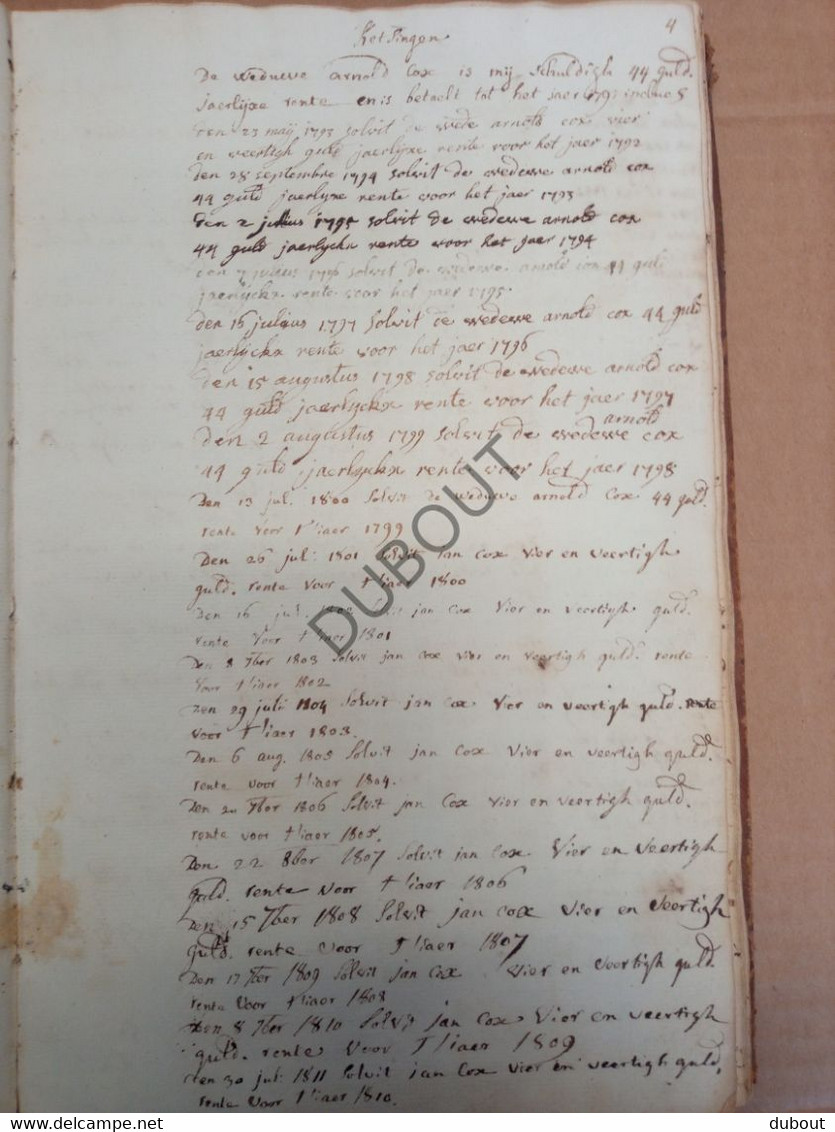 4
Ket Singen
De weduwe arnold Cox is mij schuldigh 44 guld.
jaerlijxe rente en is betaelt tot het jaer 1791
Den 23 maij 1793 solvit de wede arnold cox vier
en veertigh guld jaerlijxe rente voor het jaer 1792
den 28 septembre 1794 solvit de wedewe arnold cox
44 guld jaerlyxe rente voor het jaer 1793
den 2 julius 1795 solvit de wedewe arnold cox
44 guld jaerlyckx rente voor het jaer 1794
den 7 julius 1796 solvit de wedewe arnold cox 44 guld
jaerlijckx rente voor het jaer 1795.
den 16 julius 1797 solvit de wedewe arnold cox 44 guld
jaerlijckx rente voor het jaer 1796
den 15 augustus 1798 solvit de wedewe arnold cox
44 guld jaerlyckx rente voor het jaer 1797
arnold
den 2 augustus 1799 solvit de wedewe cox
44 guld jaerlyckx rente voor het jaer 1798
Den 13 jul. 1800 solvit de weduwe arnold Cox 44 guld.
rente voor t'iaer 1799
Den 26 jul: 1801 solvit jan Cox vier en veertigh
guld. rente voor t'iaer 1800
Den 16 jul. 1802 solvit jan Cox vier en veertigh guld.
rente voor t'iaer 1801
Den 8 7ber 1803 solvit jan cox vier en veertigh guld. rente
voor t'iaer 1802
Den 29 juli 1804 solvit jan cox vier en veertigh guld. rente
voor t'iaer 1803.
Den 6 aug. 1805 solvit jan Cox vier en veertigh guld.
rente voor t'iaer 1804.
Den 7ber 1806 solvit jan Cox vier en veertigh guld.
rente voor t'iaer 1805.
Den 22 8ber 1807 solvit jan Cox vier en veertigh
guld. rente voor t'iaer 1806
Den 15 7ber 1808 solvit jan cox vier en veertigh
guld. rente voor t'iaer 1807
Den 17 7ber 1809 solvit jan Cox vier en veertigh guld.
rente voor t'iaer 1808
Den 8 7ber 1810 solvit jan Cox vier en veertigh
guld. rente voor t'iaer 1809
den 30 jul: 1811 solvit jan Cox vier en veertigh guld.
rente voor t'iaer 1810.
DUBOUT
delcampe.net
dubout